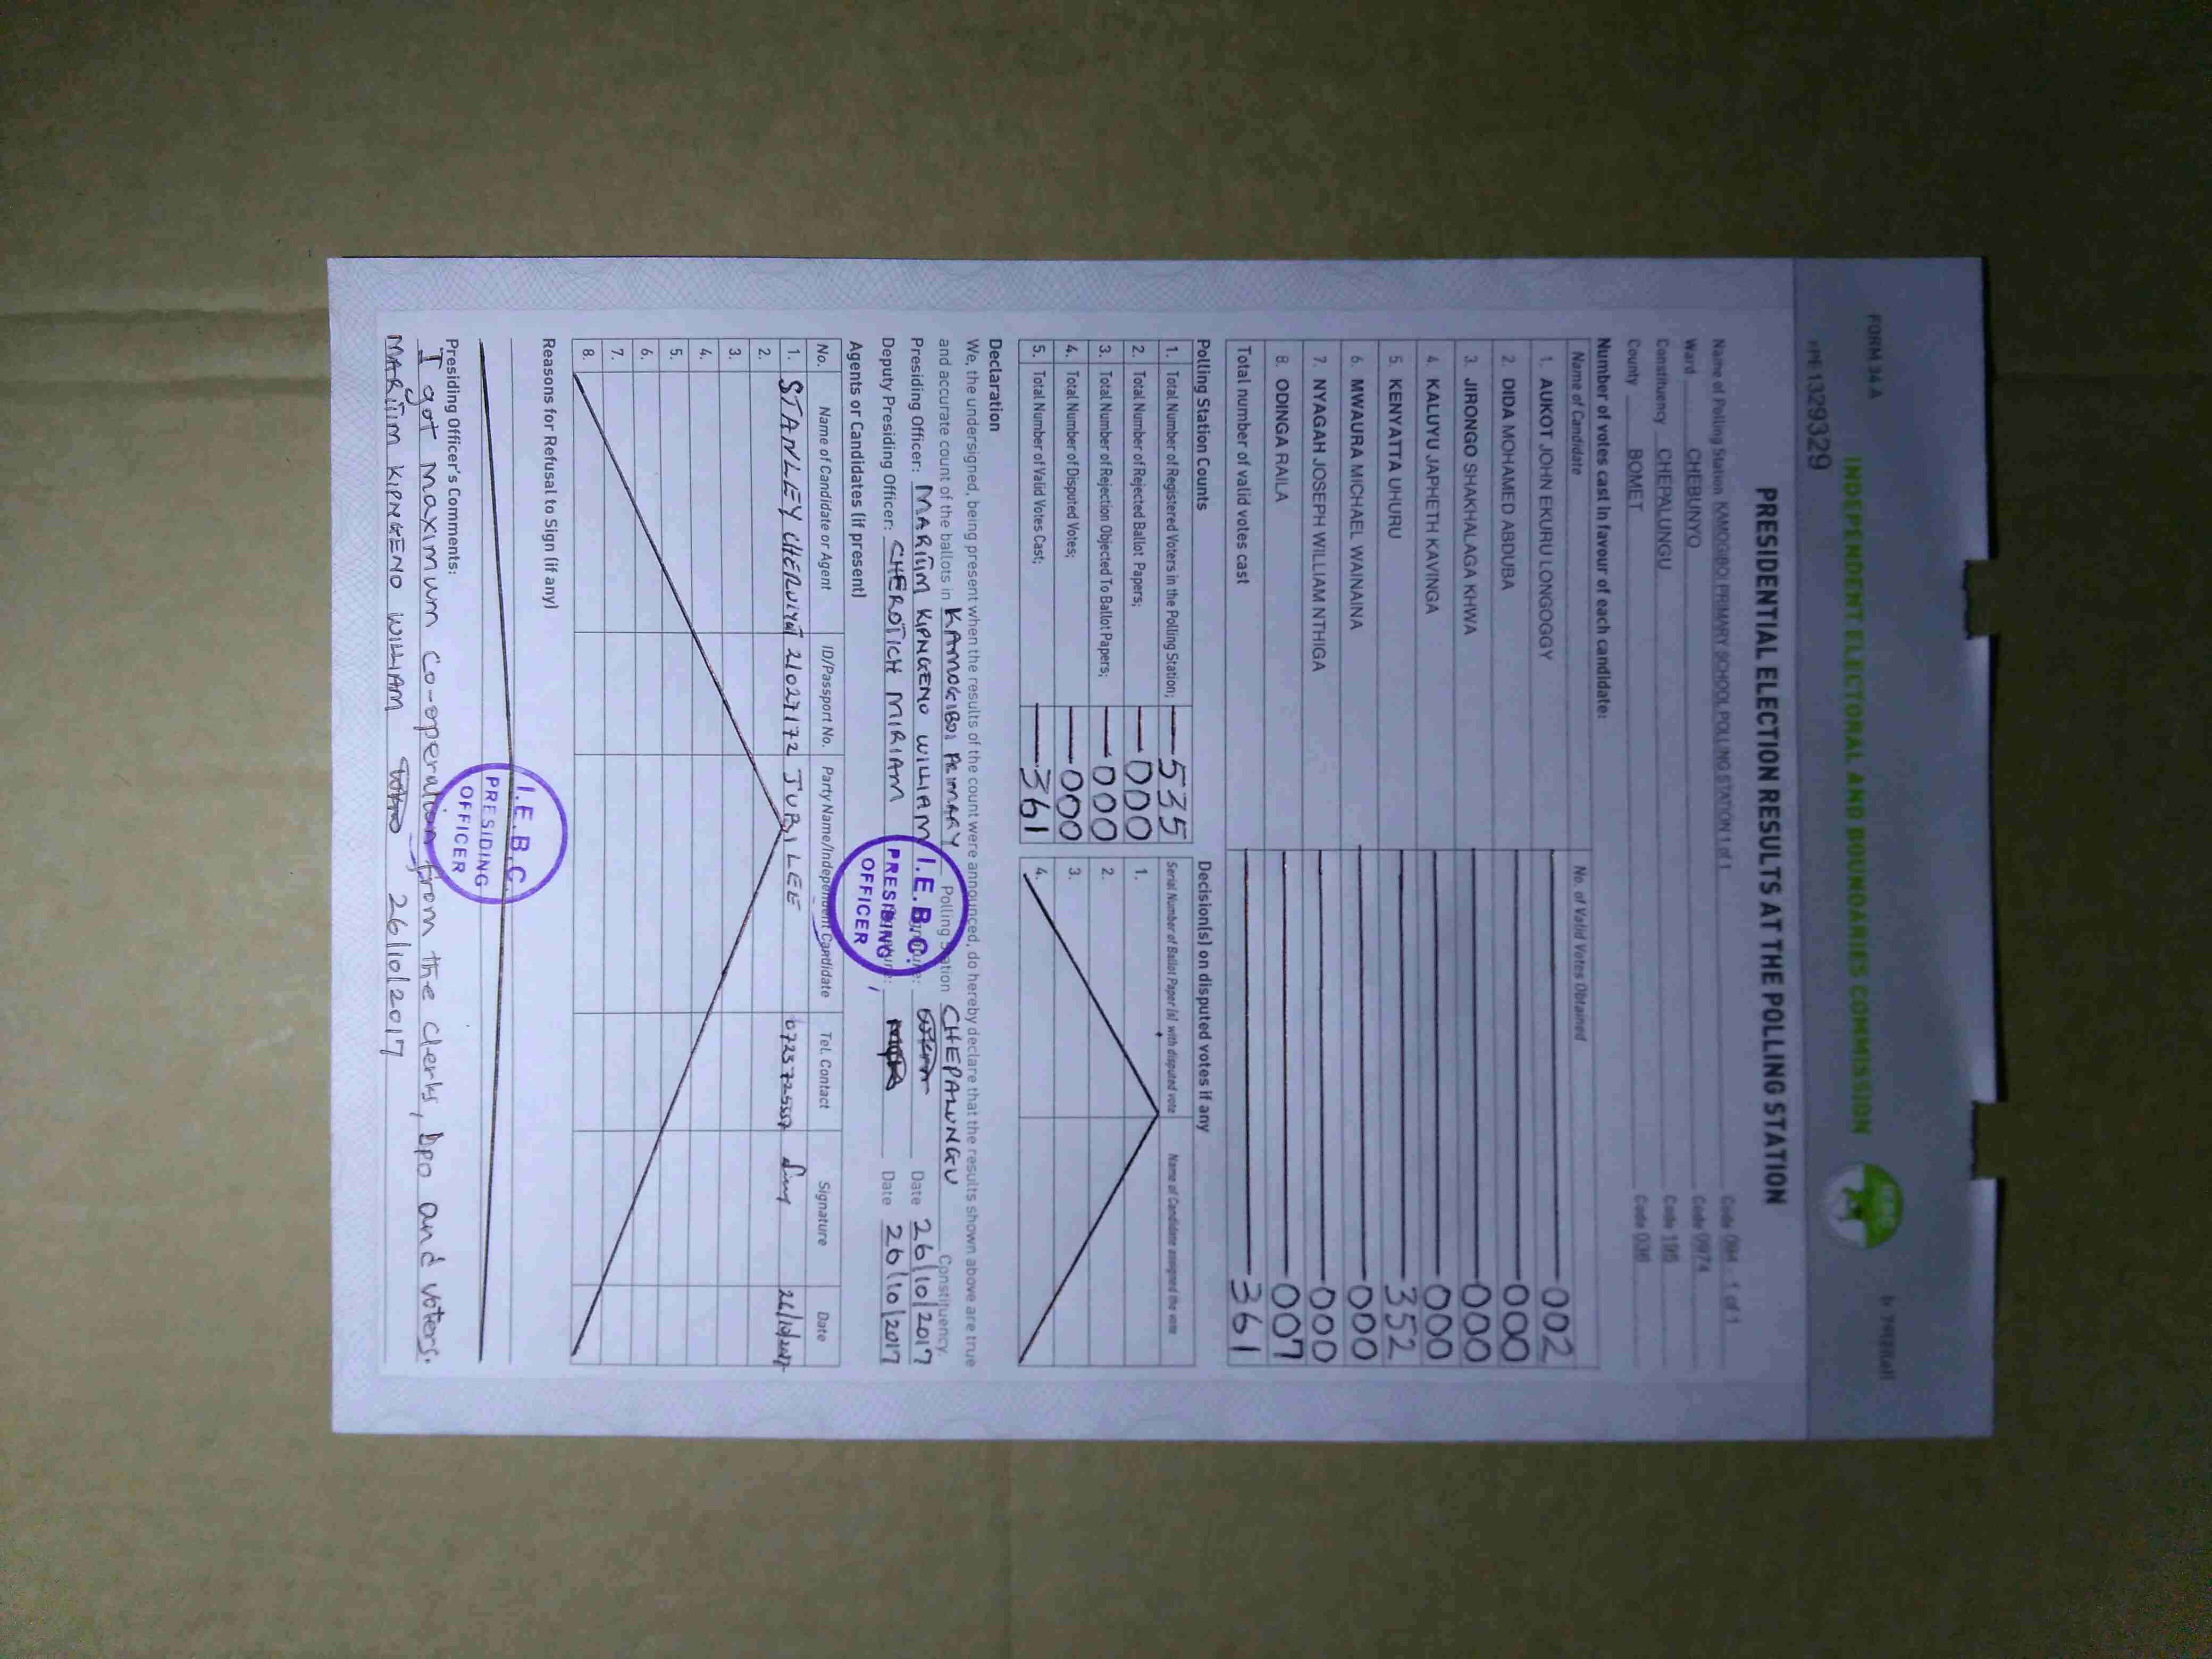 FORM 34 A
INDEPENDENT ELECTORAL AND BOUNDARIES COMMISSION
IEBC
PRESIDENTIAL ELECTION RESULTS AT THE POLLING STATION
Name of Polling Station KAMOGIBOI PRIMARY SCHOOL POLLING STATION 1 of 1 Code 094 1 of 1
Ward CHEBUNYO Code 0974
Constituency CHEPALUNGU Code 195
County BOMET Code 036
Number of votes cast in favour of each candidate:
Name of Candidate No. of Valid Votes Obtained
1. AUKOT JOHN EKURU LONGOGGY 002
2. DIDA MOHAMED ABDUBA 000
3. JIRONGO SHAKHALAGA KHWA 000
4. KALUYU JAPHETH KAVINGA 000
5. KENYATTA UHURU 352
6. MWAURA MICHAEL WAINAINA 000
7. NYAGAH JOSEPH WILLIAM NTHIGA 000
8. ODINGA RAILA 007
Total number of valid votes cast 361
Polling Station Counts
1. Total Number of Registered Voters in the Polling Station; 535
2. Total Number of Rejected Ballot Papers; 000
3. Total Number of Rejection Objected To Ballot Papers; 000
4. Total Number of Disputed Votes; 000
5. Total Number of Valid Votes Cast; 361
Decision(s) on disputed votes if any
Serial Number of Ballot Paper (s) with disputed vote Name of Candidate assigned the vote
1.
2.
3.
4.
Declaration
We, the undersigned, being present when the results of the count were announced, do hereby declare that the results shown above are true
and accurate count of the ballots in KAMOGIBOI PRIMARY Polling Station CHEPALUNGU Constituency.
Presiding Officer: MARITIM KIPNGENO WILLIAM Date 26/10/2017
Deputy Presiding Officer: CHEROTICH MIRIAM Date 26/10/2017
I.E.B.C.
PRESIDING
OFFICER
Agents or Candidates (if present)
No. Name of Candidate or Agent ID/Passport No. Party Name/Independent Candidate Tel. Contact Signature Date
1. STANLEY CHERUIYOT 21027172 JUBILEE 26/10/2017
2.
3.
4.
5.
6.
7.
8.
Reasons for Refusal to Sign (if any)
I.E.B.C.
PRESIDING
OFFICER
Presiding Officer's Comments:
I got maximum co-operation from the clerks, Dpo and voters.
MARITIM KIPNGENO WILLIAM 26/10/2017